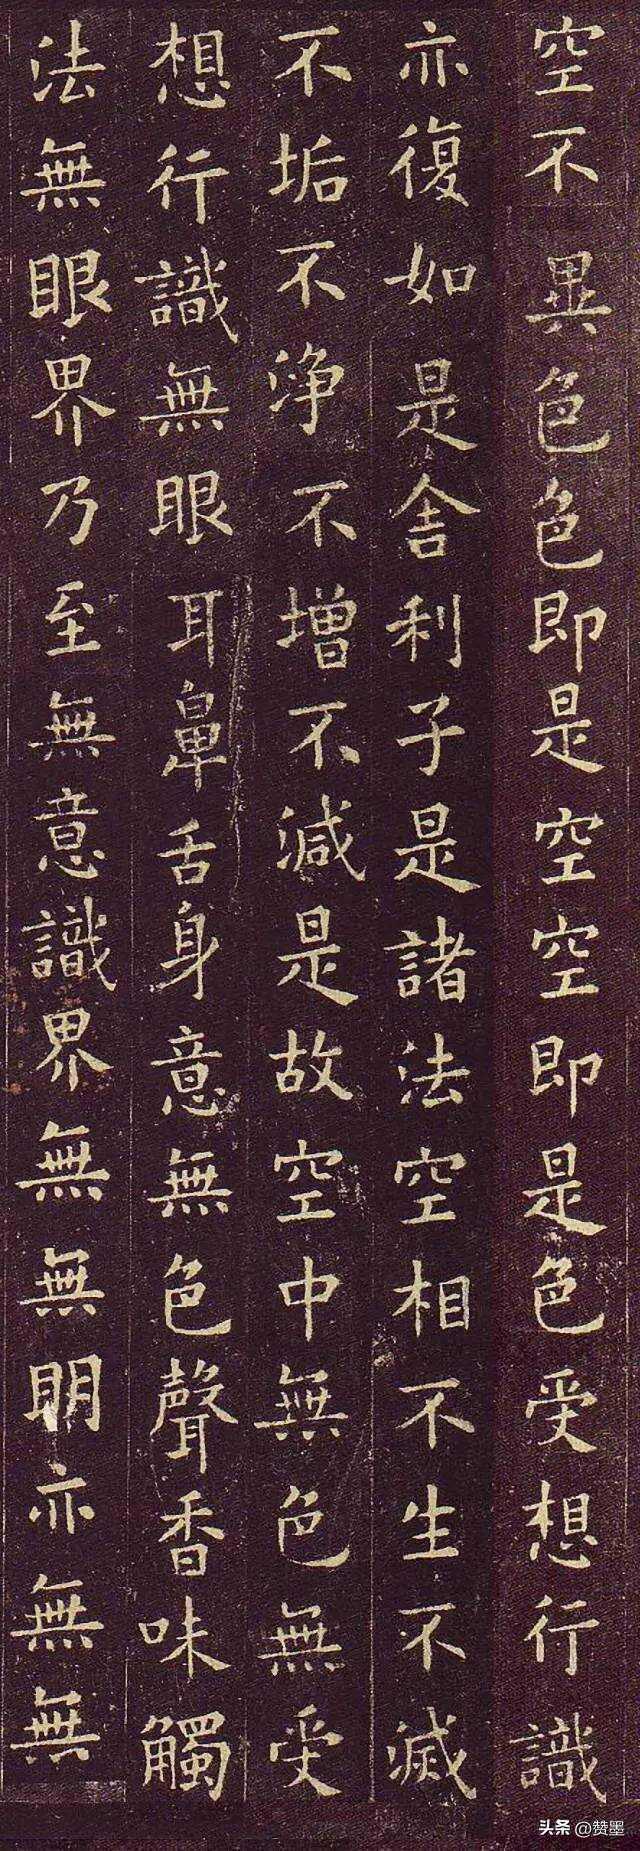 空不異色色即是空空即是色受想行識
亦復如是舍利子是諸法空相不生不滅
不垢不淨不增不減是故空中無色無受
想行識無眼耳鼻舌身意無色聲香味觸
法無眼界乃至無意識界無無明亦無無
头条 @赞墨